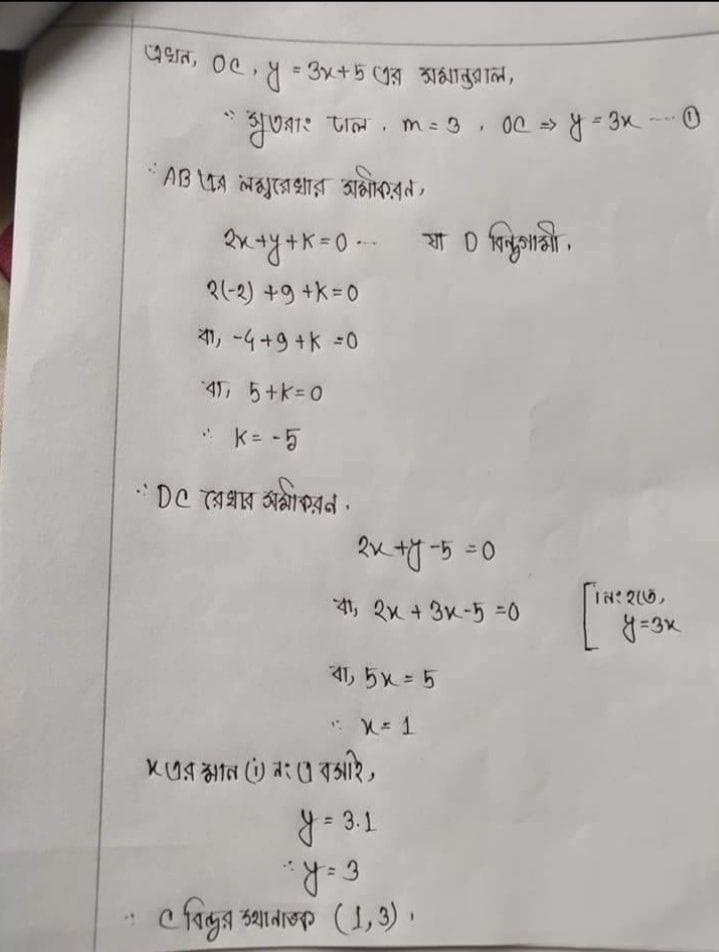 এখন, OC, y = 3x+5 এর সমান্তরাল,
∵ সুতরাং ঢাল, m = 3 , OC ⇒ y = 3x ---- ①
∵ AB এর লম্বরেখার সমীকরন,
2x+y+K=0 --- যা D বিন্দুগামী.
2(-2) +9 +K=0
বা, -4+9 +K =0
বা, 5+K=0
∴ K= -5
∵ DC রেখার সমীকরন.
2x+y-5 =0
বা, 2x + 3x-5 =0 [i নং হতে,
y=3x
বা, 5x = 5
∴ x = 1
x এর মান (i) নং এ বসাই,
y = 3.1
∴ y = 3
∴ C বিন্দুর স্থানাঙ্ক (1,3) .